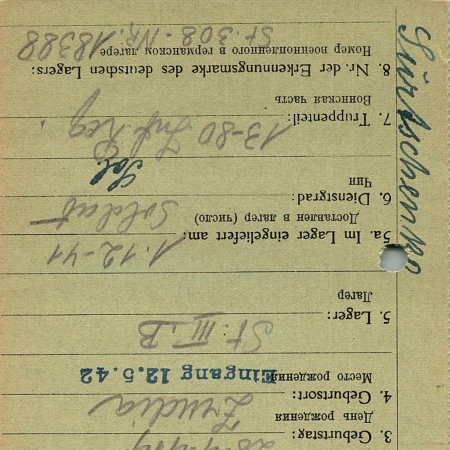 3. Geburtstag: 28-4-
День рождения
4. Geburtsort:
Место рождения
Eingang 12.5.42
St: III. B
5. Lager:
Лагер
5a. Im Lager eingeliefert am: 1.12-41
Доставлен в лагер (число)
6. Dienstgrad: Soldat
Чин
Sol.
7. Truppenteil: 13-80. Inf. Reg.
Воинская часть
8. Nr. der Erkennungsmarke des deutschen Lagers:
Номер военнопленного в германском лагере
St. 308 - Nr. 18388